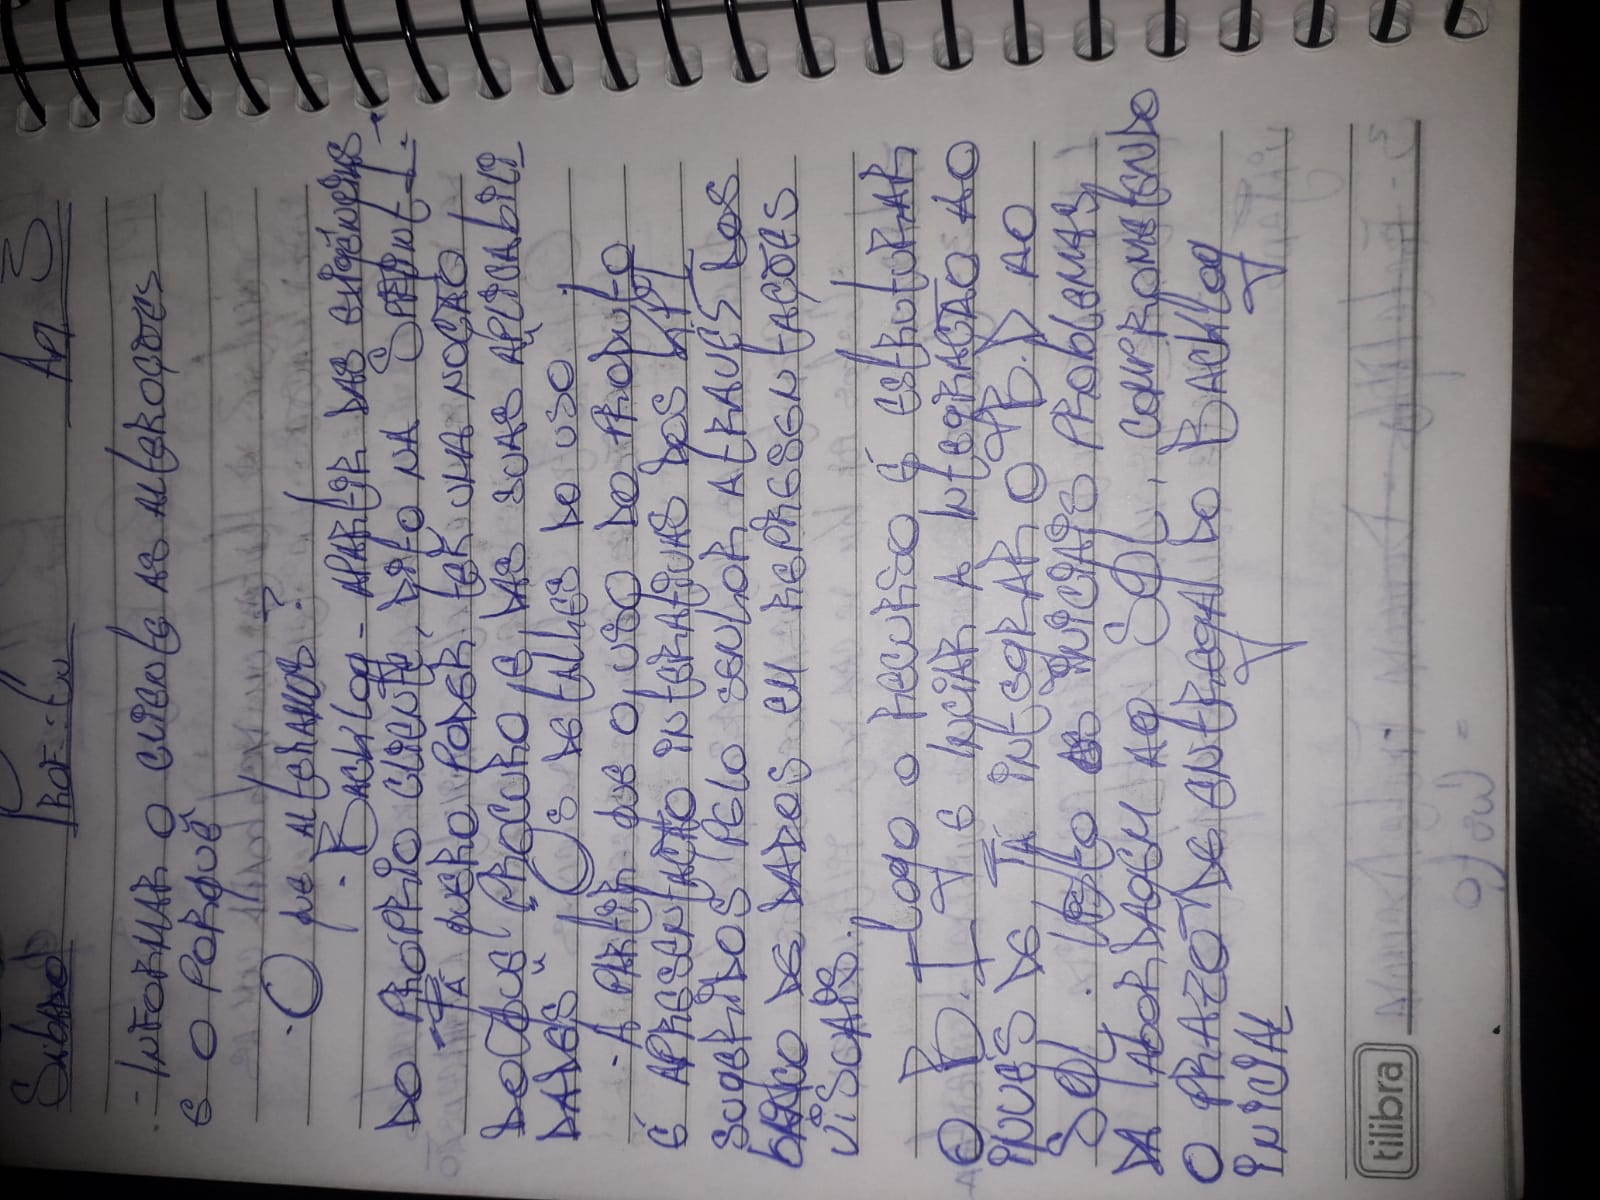 - INFORMAR O CLIENTE AS ALTERAÇÕES
E O PORQUÊ
. O QUE ALTERAMOS?
- BACKLOG - APARTIR DAS EXIGÊNCIAS
DO PRÓPRIO CLIENTE, DITO NA SPRINT 1.
QUERO PODER TER UMA NOÇÃO
DO QUE PROCURO E DAS SUAS APLICABILI
DADES E DETALHES DO USO.
- A PARTIR QUE O USO DO PRODUTO
É APRESENTAÇÃO INTERATIVAS DOS KPI
SUGERIDOS PELO SENIOR ATRAVÉS DOS
BANCO DE DADOS EM REPRESENTAÇÕES
VISUAIS.
LOGO O RECURSO É ESTRUTURAR
O B.I E INICIAR A INTEGRAÇÃO AO
INVÉS DE JÁ INTEGRAR O B.I AO
SQL. ISTO INICIARÁ PROBLEMAS
DA ABORDAGEM AO SQL, COMPROMETENDO
O PRAZO DE ENTREGA DO BACKLOG
INICIAL
tilibra